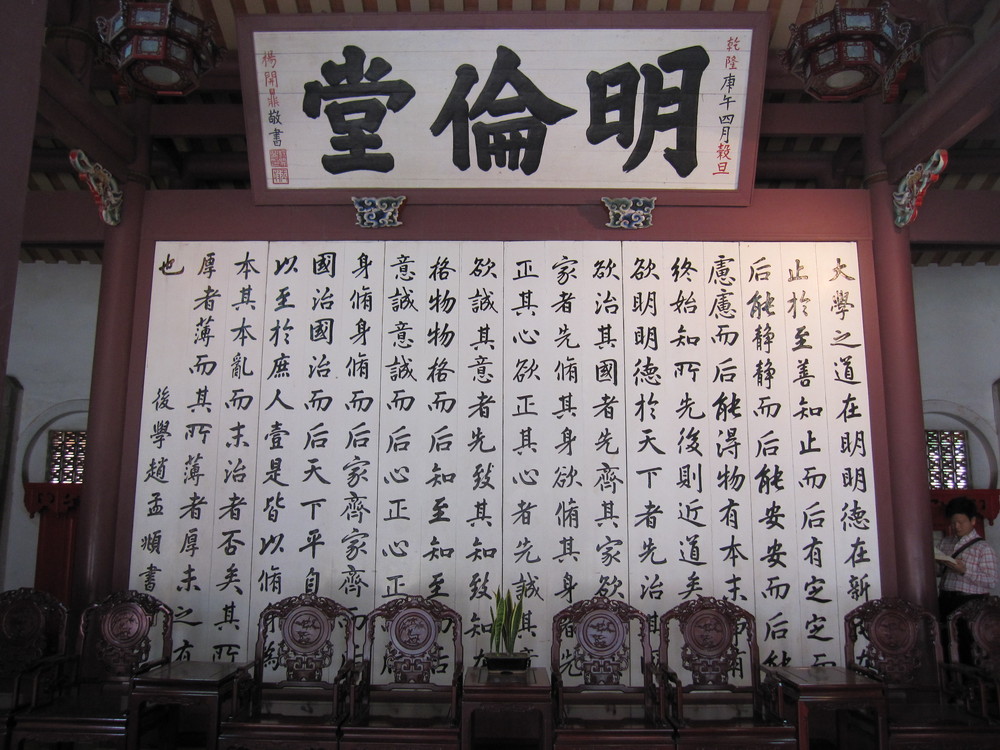 乾隆庚午四月穀旦
明倫堂
楊開鼎敬書
大學之道在明明德在新
止於至善知止而后有定定而
后能静静而后能安安而后
慮慮而后能淂物有本末
终始知所先後則近道矣
欲明明德於天下者先治其
欲治其國者先齊其家欲
家者先脩其身欲脩其身者先
正其心欲正其心者先誠其
欲誠其意者先致其知致知在
格物物格而后知至知至而后
意誠意誠而后心正心正
身脩身脩而后家齊家齊而
國治國治而后天下平自
以至於庶人壹是皆以脩
本其本亂而末治者否矣其所
厚者薄而其所薄者厚未之有
也
後學趙孟頫書